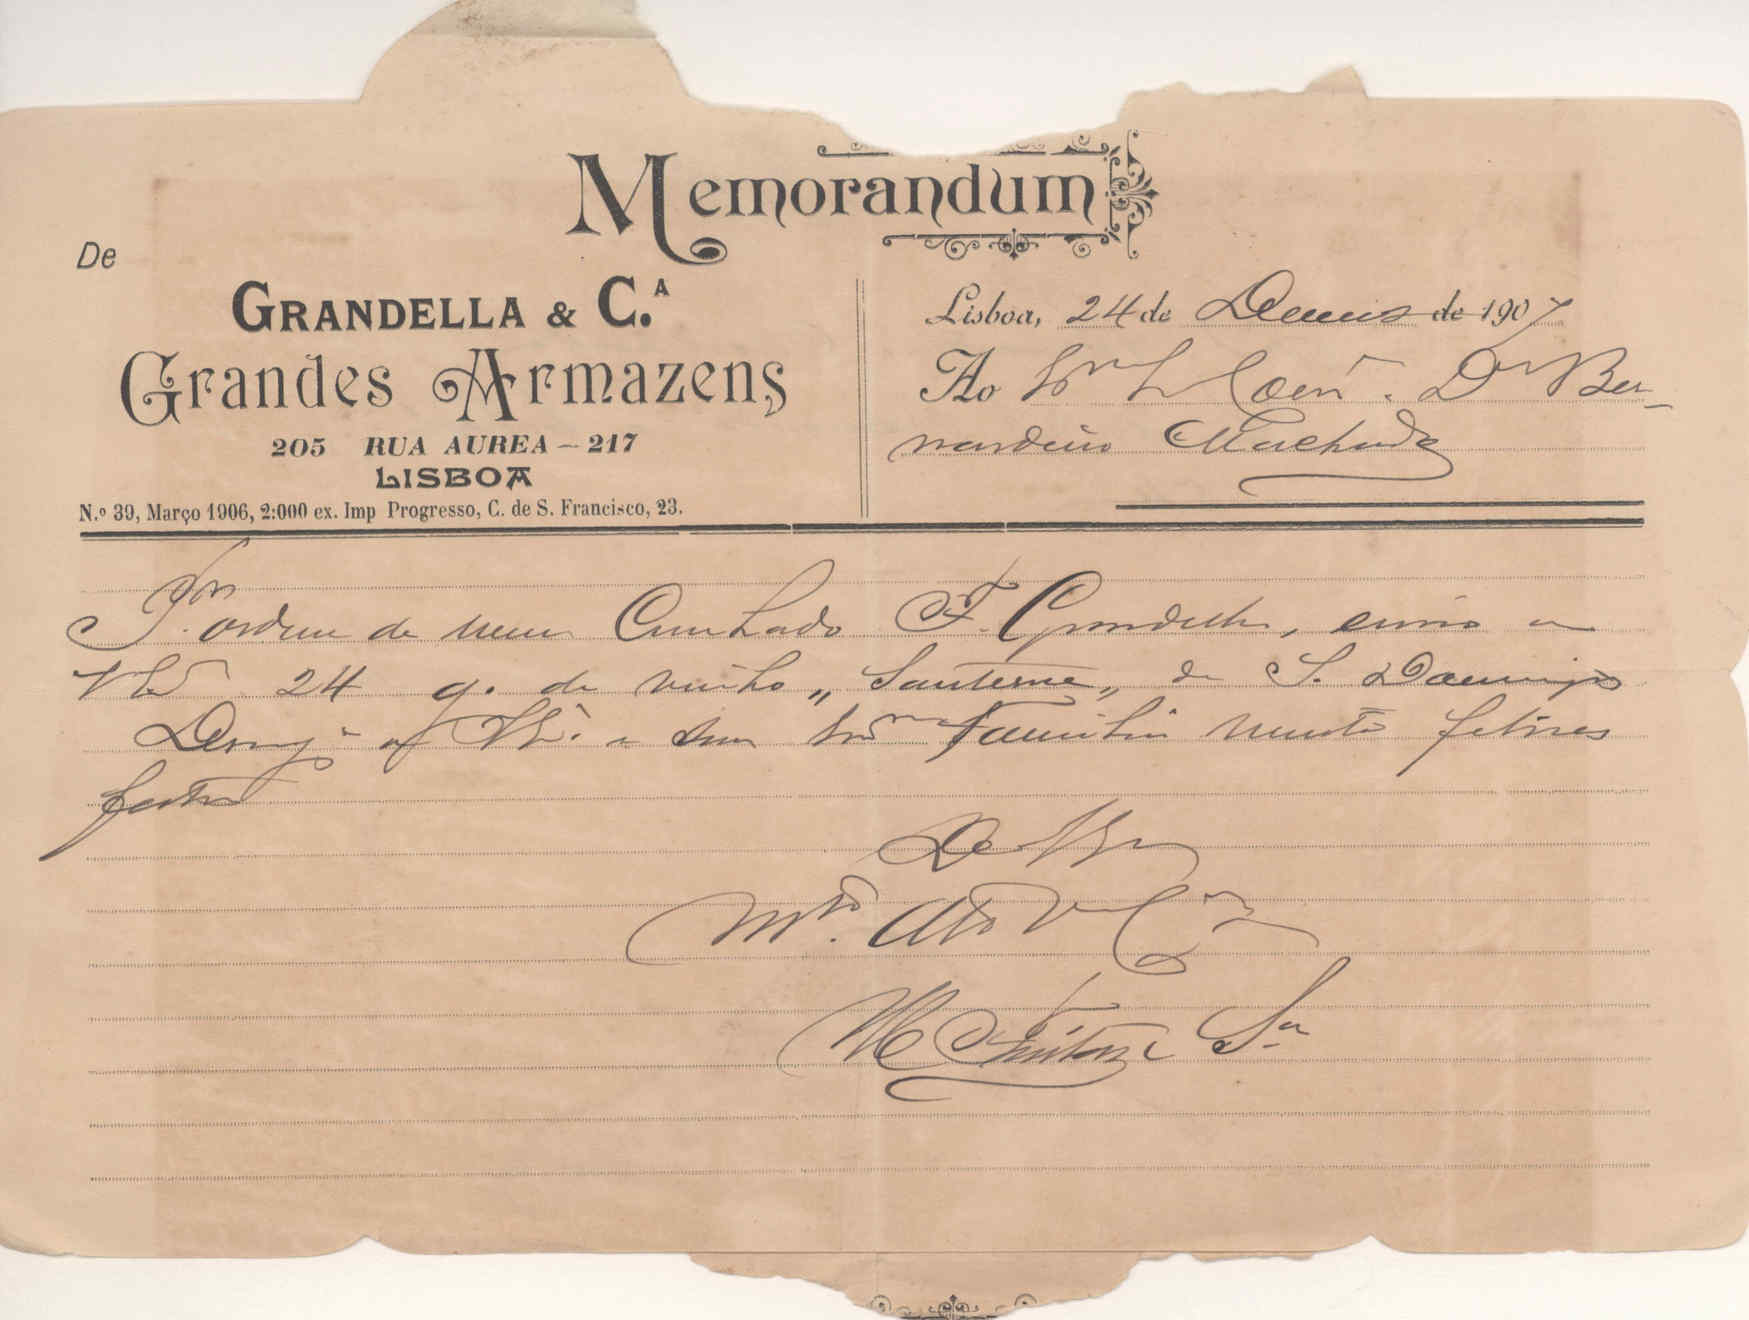 Memorandum
De
GRANDELLA & C.A
Grandes Armazens
205 RUA AUREA – 217
LISBOA
N.º 39, Março 1906, 2:000 ex. Imp Progresso, C. de S. Francisco, 23.
Lisboa, 24 de de 1907
Ao Dr Ber-
nardino Machado
Pr. ordem de meu Cunhado F. Grandella, envio a
24 g. de vinho „ Sauterne „ de S. Domingos
e sua Familia muito felizes
festas
De
Mto. Ato